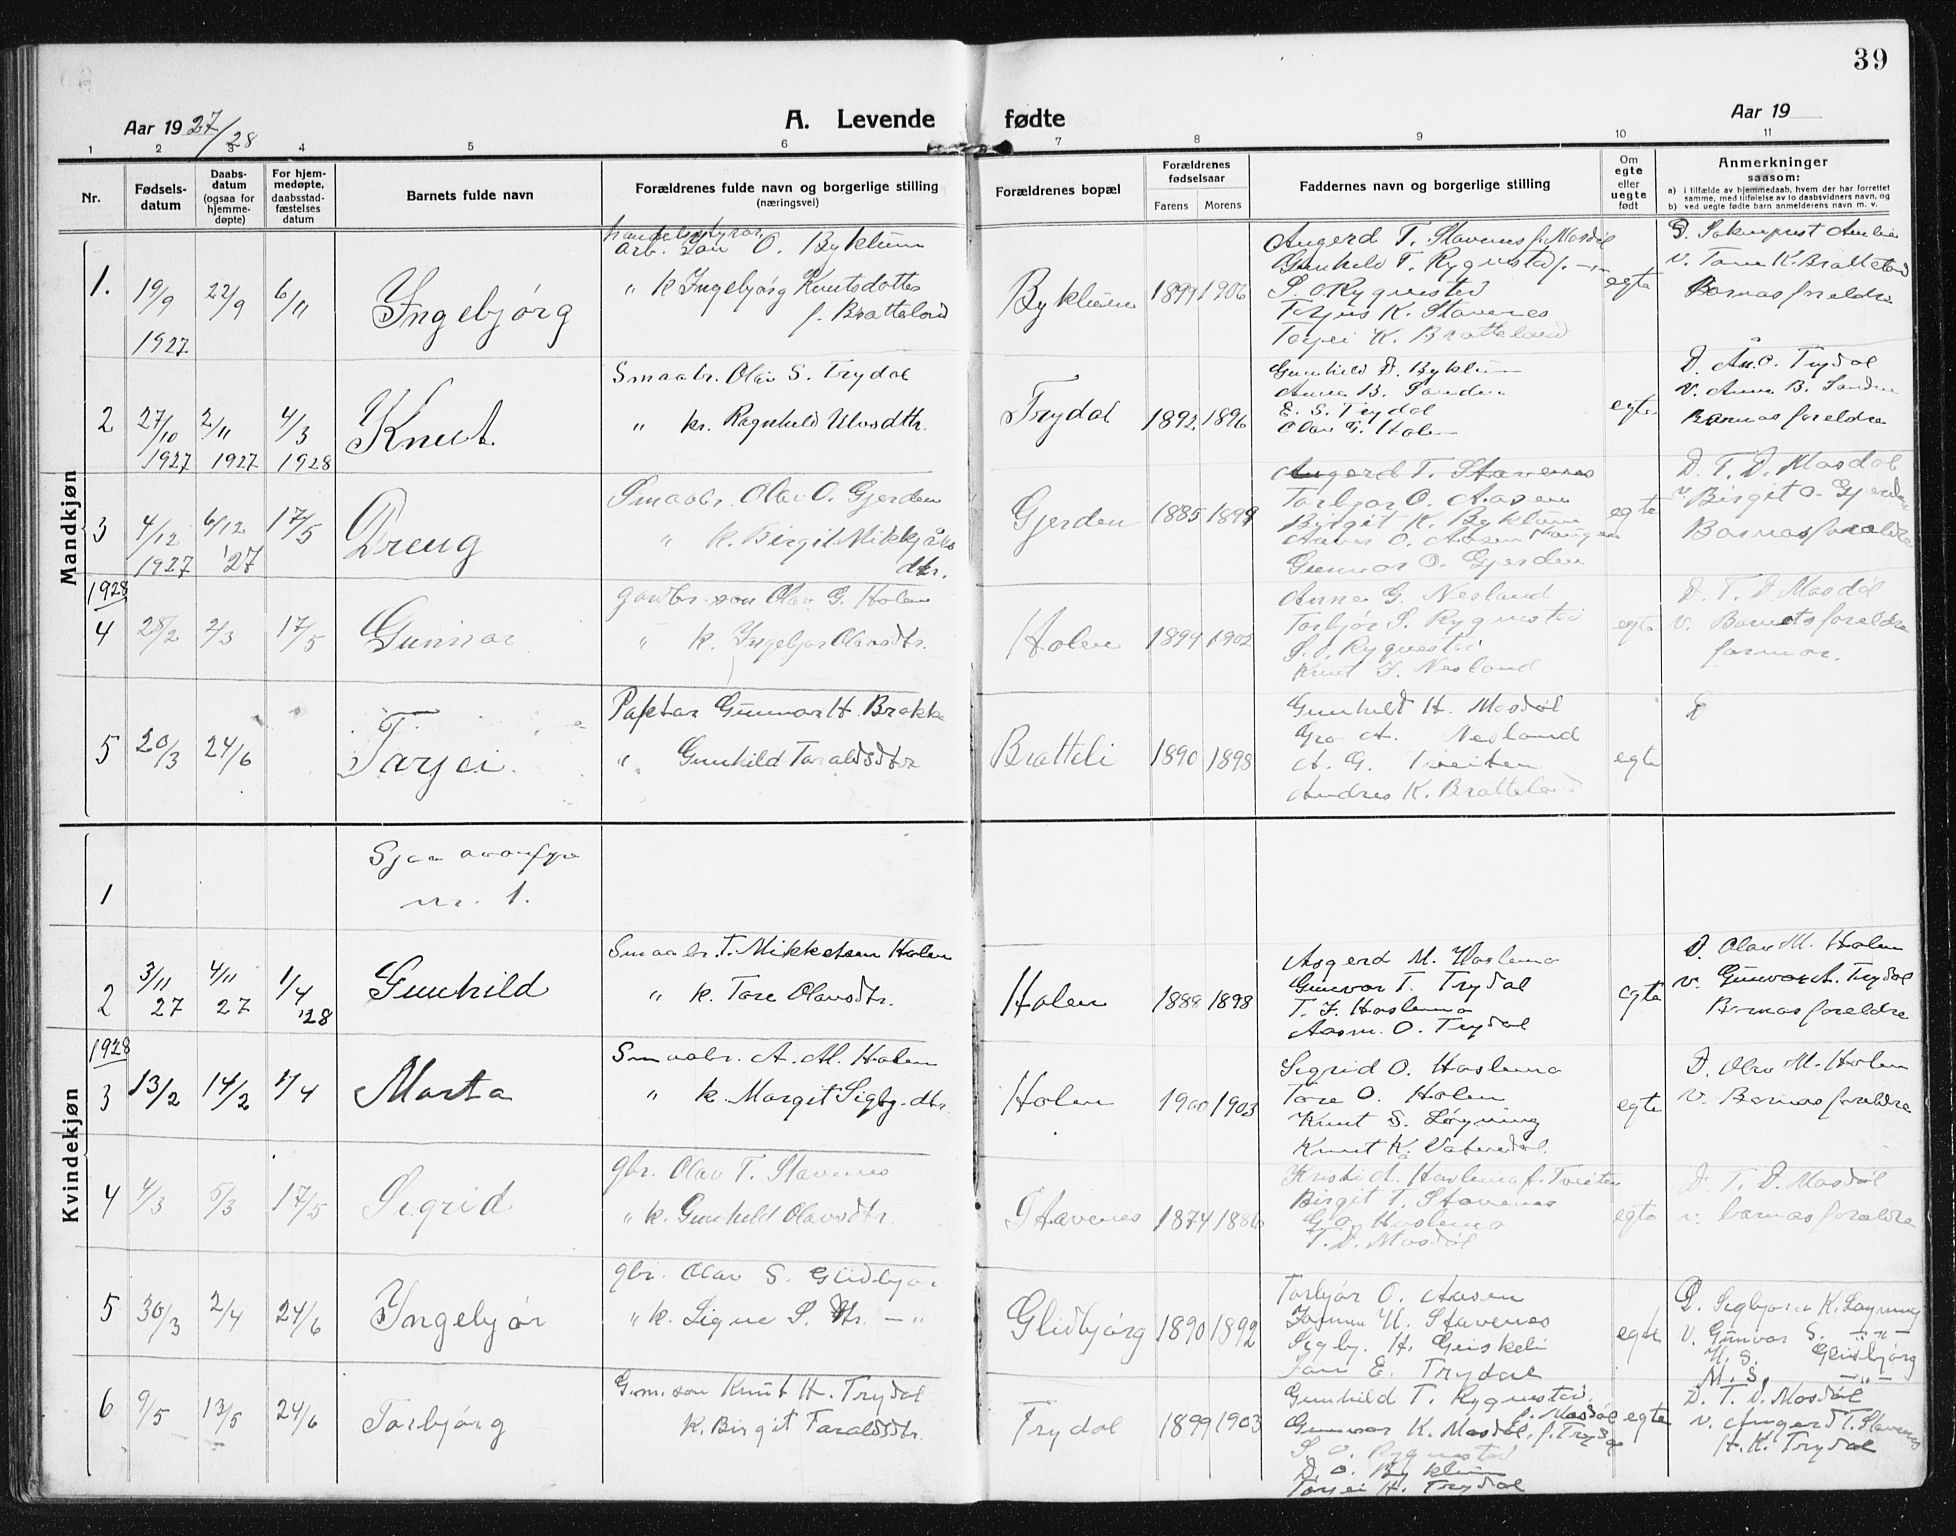 39
Aar 1927/28
A. Levende fødte
Aar 19
1 2 3 4 5 6 7 8 9 10 11
Nr.
Fødsels-
datum
Daabs-
datum
(ogsaa for
hjemme-
døpte)
For hjem-
medøpte,
daabsstad-
fæstelses
datum
Barnets fulde navn
Forældrenes fulde navn og borgerlige stilling
(næringsvei)
Forældrenes bopæl
Forældrenes
fødselsaar
Farens Morens
Faddernes navn og borgerlige stilling
Om
egte
eller
uegte
født
Anmerkninger
saasom:
a) i tilfælde av hjemmedaab, hvem der har forrettet
samme, med tilføielse av to daabsvidners navn, og
b) ved uegte fødte barn anmelderens navn m. v.
Mandkjøn
1. 19/9 1927 22/9 6/11
Ingebjørg
O. Byklum
" k Ingebjørg Knutsdotter
f. Bratteland
Byklum 1899 1906
Angerd T. Stavenes f. Mosdøl
Gunhild T. Rygnestad
Rygnestad
K. Stavenes
Torjei K. Bratteland
egte
v. Tone K. Bratteland
Barnas foreldre
2 27/10 1927 2/11 1927 4/3 1928
Knut
Smaabr. Olav S. Trydal
" kr. Ragnhild Ulvsdtr.
Trydal 1892 1896
Gunhild D. Byklum
Anna B. Sanden
E. S. Trydal
Olav G. Holen
egte
D. Trydal
v. Anna B. Sanden
Barnas foreldre
3 4/12 1927 6/12 '27 17/5
Dreng
Smaabr. Olav O. Gjerden
" k. Birgit Mikkjåls
dtr.
Gjerden 1885 1899
Angerd T. Stavenes
Torbjør O. Aasen
Birgit K. Byklum
O. Aasen
Gunnar O. Gjerden
egte
D. T. D. Mosdøl
v. Birgit O. Gjerden
Barnas foreldre
1928
4 28/2 2/3 17/5
Gunnar
gardbr. son Olav G. Holen
" k. Ingebjør Olavsdtr.
Holen 1899 1902
Anne G. Nesland
Torbjør S. Rygnestad
S. O. Rygnestad
Knut J. Nesland
egte
D. T. D. Mosdøl
v. Barnets foreldre
farmor.
5 20/3 24/6
Tarjei
Gunnar H. Brokke
" Gunhild Taraldsdtr
Bratteli 1890 1898
Gunhild H. Mosdøl
Gro A. Nesland
A. G. Tveiten
Andres K. Bratteland
egte
Kvindekjøn
1
Sjaa ovanfyr
nr. 1.
2 3/11 27 4/11 27 1/4 '28
Gunhild
Smaabr. T. Mikkelsen Holen
" k. Tore Olavsdtr.
Holen 1888 1898
Asgerd M. Haslemo
Gunvor T. Trydal
T. J. Haslemo
Aasm. O. Trydal
egte
D. Olav M. Holen
v. Gunvor A. Trydal
Barnas foreldre
1928
3 13/2 14/2 1/4
Marta
Smaabr. A. M. Holen
" k. Margit Sigbj. dtr.
Holen 1900 1903
Sigrid O. Haslemo
Tore O. Holen
Knut S. Løyning
Knut K. Vatnedal.
egte
D. Olav M. Holen
v. Barnas foreldre
4 4/3 5/3 17/5
Sigrid
gbr. Olav T. Stavenes
" k. Gunhild Olavsdtr.
Stavenes 1874 1886
Haslemo f. Tveiten
Birgit T. Stavenes
G. O. Haslemo
T. D. Mosdøl
egte
D. T. D. Mosdøl
v. barnas foreldre
5 30/3 2/4 24/6
Ingebjør
gbr. Olav S. Glidbjør
" k. Signe S. dtr. — " —
Glidbjørg 1890 1892
Torbjør O. Aasen
H. Stavenes
Sigbj. H. Geiskeli
E. Trydal
egte
D. K. Løyning
v. Gunvor S. — " —
H. S. Glidbjørg
M. S. — " —
6 9/5 13/5 24/6
Torbjørg
G.m. son Knut H. Trydal
k. Birgit Taraldsdtr.
Trydal 1899 1903
Gunhild T. Rygnestad
f. Mosdøl
Gunvor K. Mosdøl, f. Trydal
S. O. Rygnestad
D. O. Byklum
Torjei H. Trydal
egte
D. T. D. Mosdøl
v. Angerd T. Stavenes
H. K. Trydal